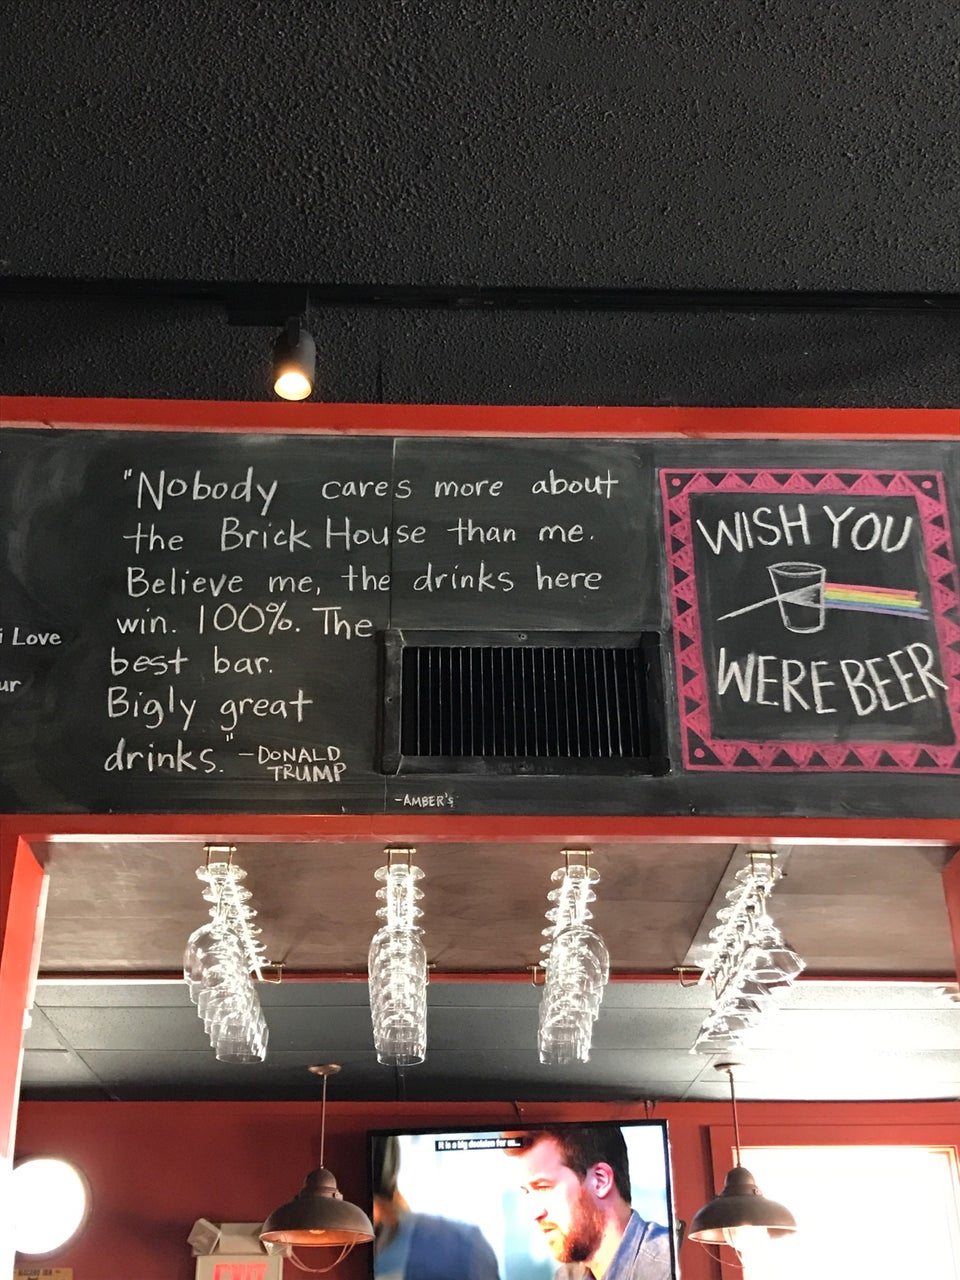 "Nobody cares more about
the Brick House than me.
Believe me, the drinks here
win. 100%. The
best bar.
Bigly great
drinks." -DONALD
TRUMP
-AMBER's
WISH YOU
WERE BEER
i Love
ur
It is a big decision for us...
EXIT